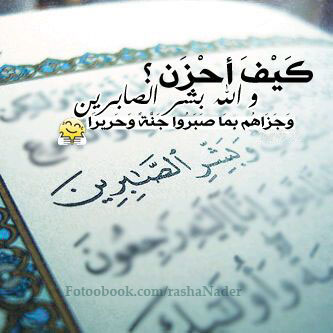 كَيْفَ أحْزَن ؟
و الله بشر الصابرين
وَجَزَاهُم بمَا صَبَرُوا جَنَّةً وَحَريرَا
وَبَشِّرِ ٱلصَّٰبِرِينَ
Fotoobook.com/rashaNader